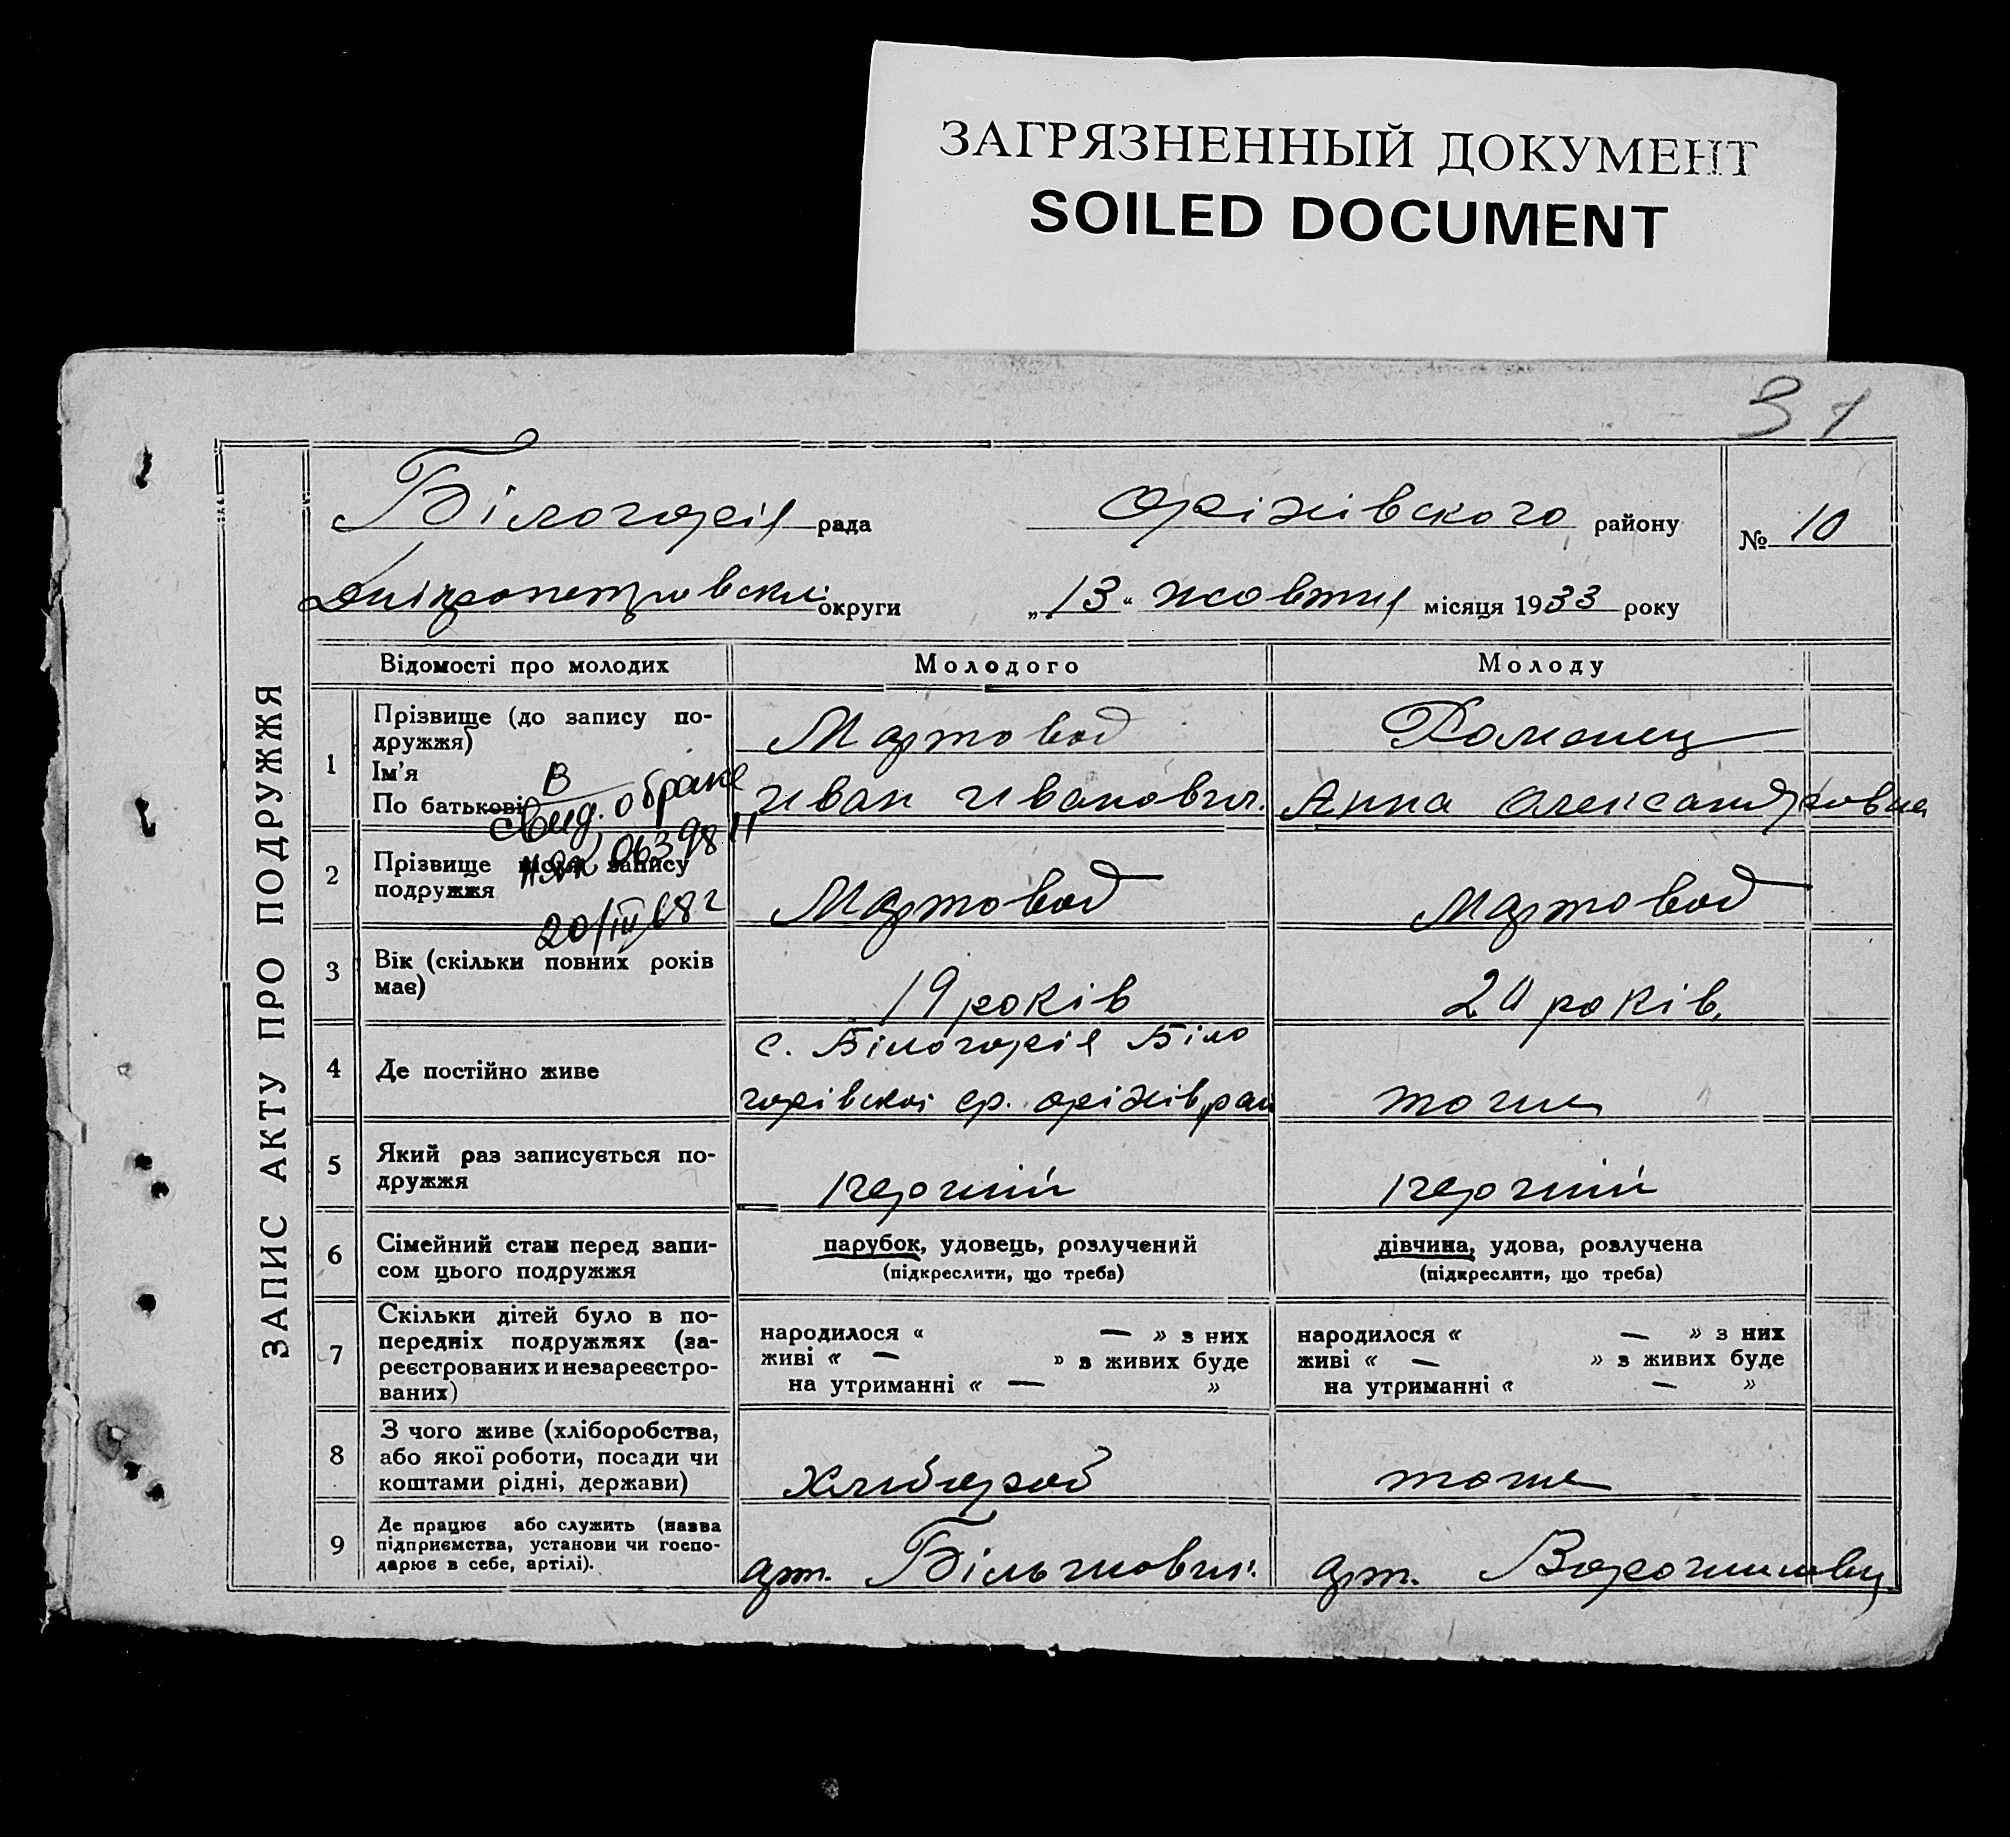 ЗАГРЯЗНЕННЫЙ ДОКУМЕНТ
SOILED DOCUMENT
31
ЗАПИС АКТУ ПРО ПОДРУЖЖЯ
Білогорія рада Оріхівского району № 10
Дніпропетровської округи „13“ жовтня місяця 1933 року
Відомості про молодих Молодого Молоду
1 Прізвище (до запису по-
дружжя) Мартовод Романец
Ім'я
По батькові Иван Иванович. Анна Олександровна
В
свид. о браке
ІІ ЯП 0639811
20/III 68 г
2 Прізвище після запису
подружжя Мартовод Мартовод
3 Вік (скільки повних років
має) 19 років 20 років.
4 Де постійно живе с. Білогорія Біло
горівскої ср. оріхів, рай тоже
5 Який раз записується по-
дружжя перший перший
6 Сімейний стан перед запи-
сом цього подружжя парубок, удовець, розлучений дівчина, удова, розлучена
(підкреслити, що треба) (підкреслити, що треба)
7 Скільки дітей було в по-
передніх подружжях (за-
реєстрованих и незареєстро-
ваних)
народилося « — » з них народилося « — » з них
живі « — » з живих буде живі « — » з живих буде
на утриманні « — » на утриманні « — »
8 З чого живе (хліборобства,
або якої роботи, посади чи
коштами рідні, держави) Хлибороб тоже
9 Де працює або служить (назва
підприємства, установи чи госпо-
дарює в себе, артілі). арт. Більшовик. арт. Ворошиловец